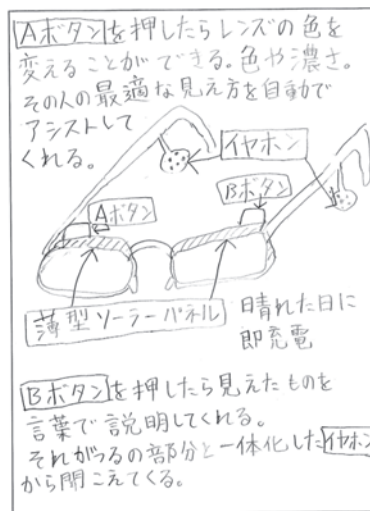 Aボタンを押したらレンズの色を
変えることができる。色や濃さ。
その人の最適な見え方を自動で
アシストして
くれる。
イヤホン
Bボタン
Aボタン
薄型ソーラーパネル
晴れた日に
即充電
Bボタンを押したら見えたものを
言葉で説明してくれる。
それがつるの部分と一体化したイヤホン
から聞こえてくる。